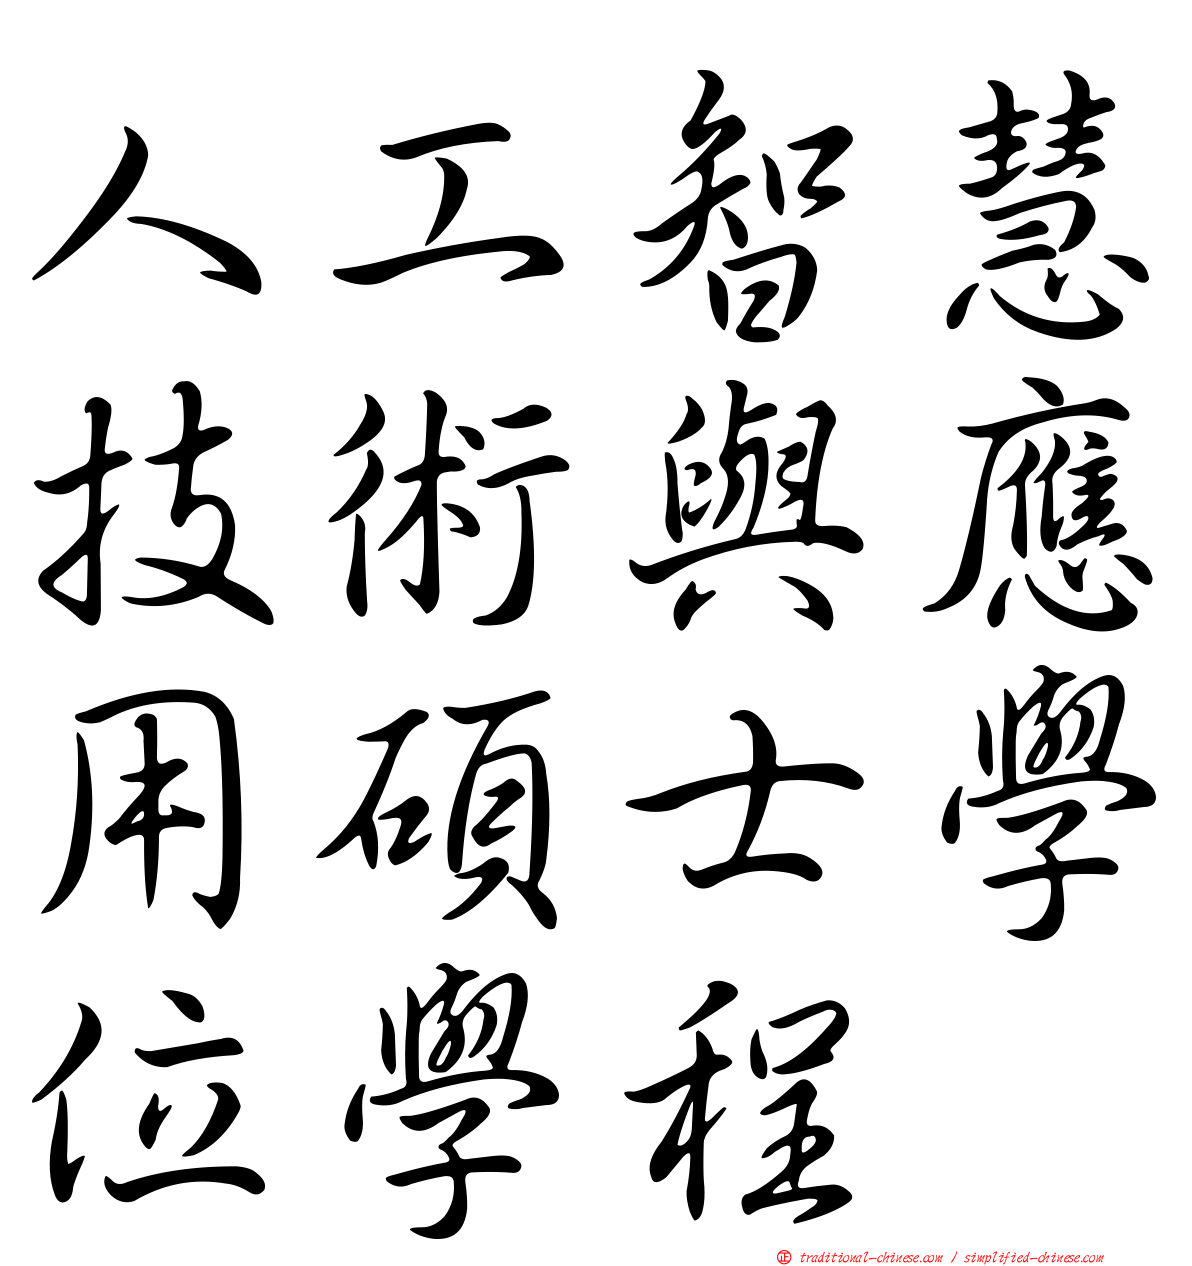 人工智慧
技術與應
用碩士學
位學程
㊣ traditional-chinese.com / simplified-chinese.com